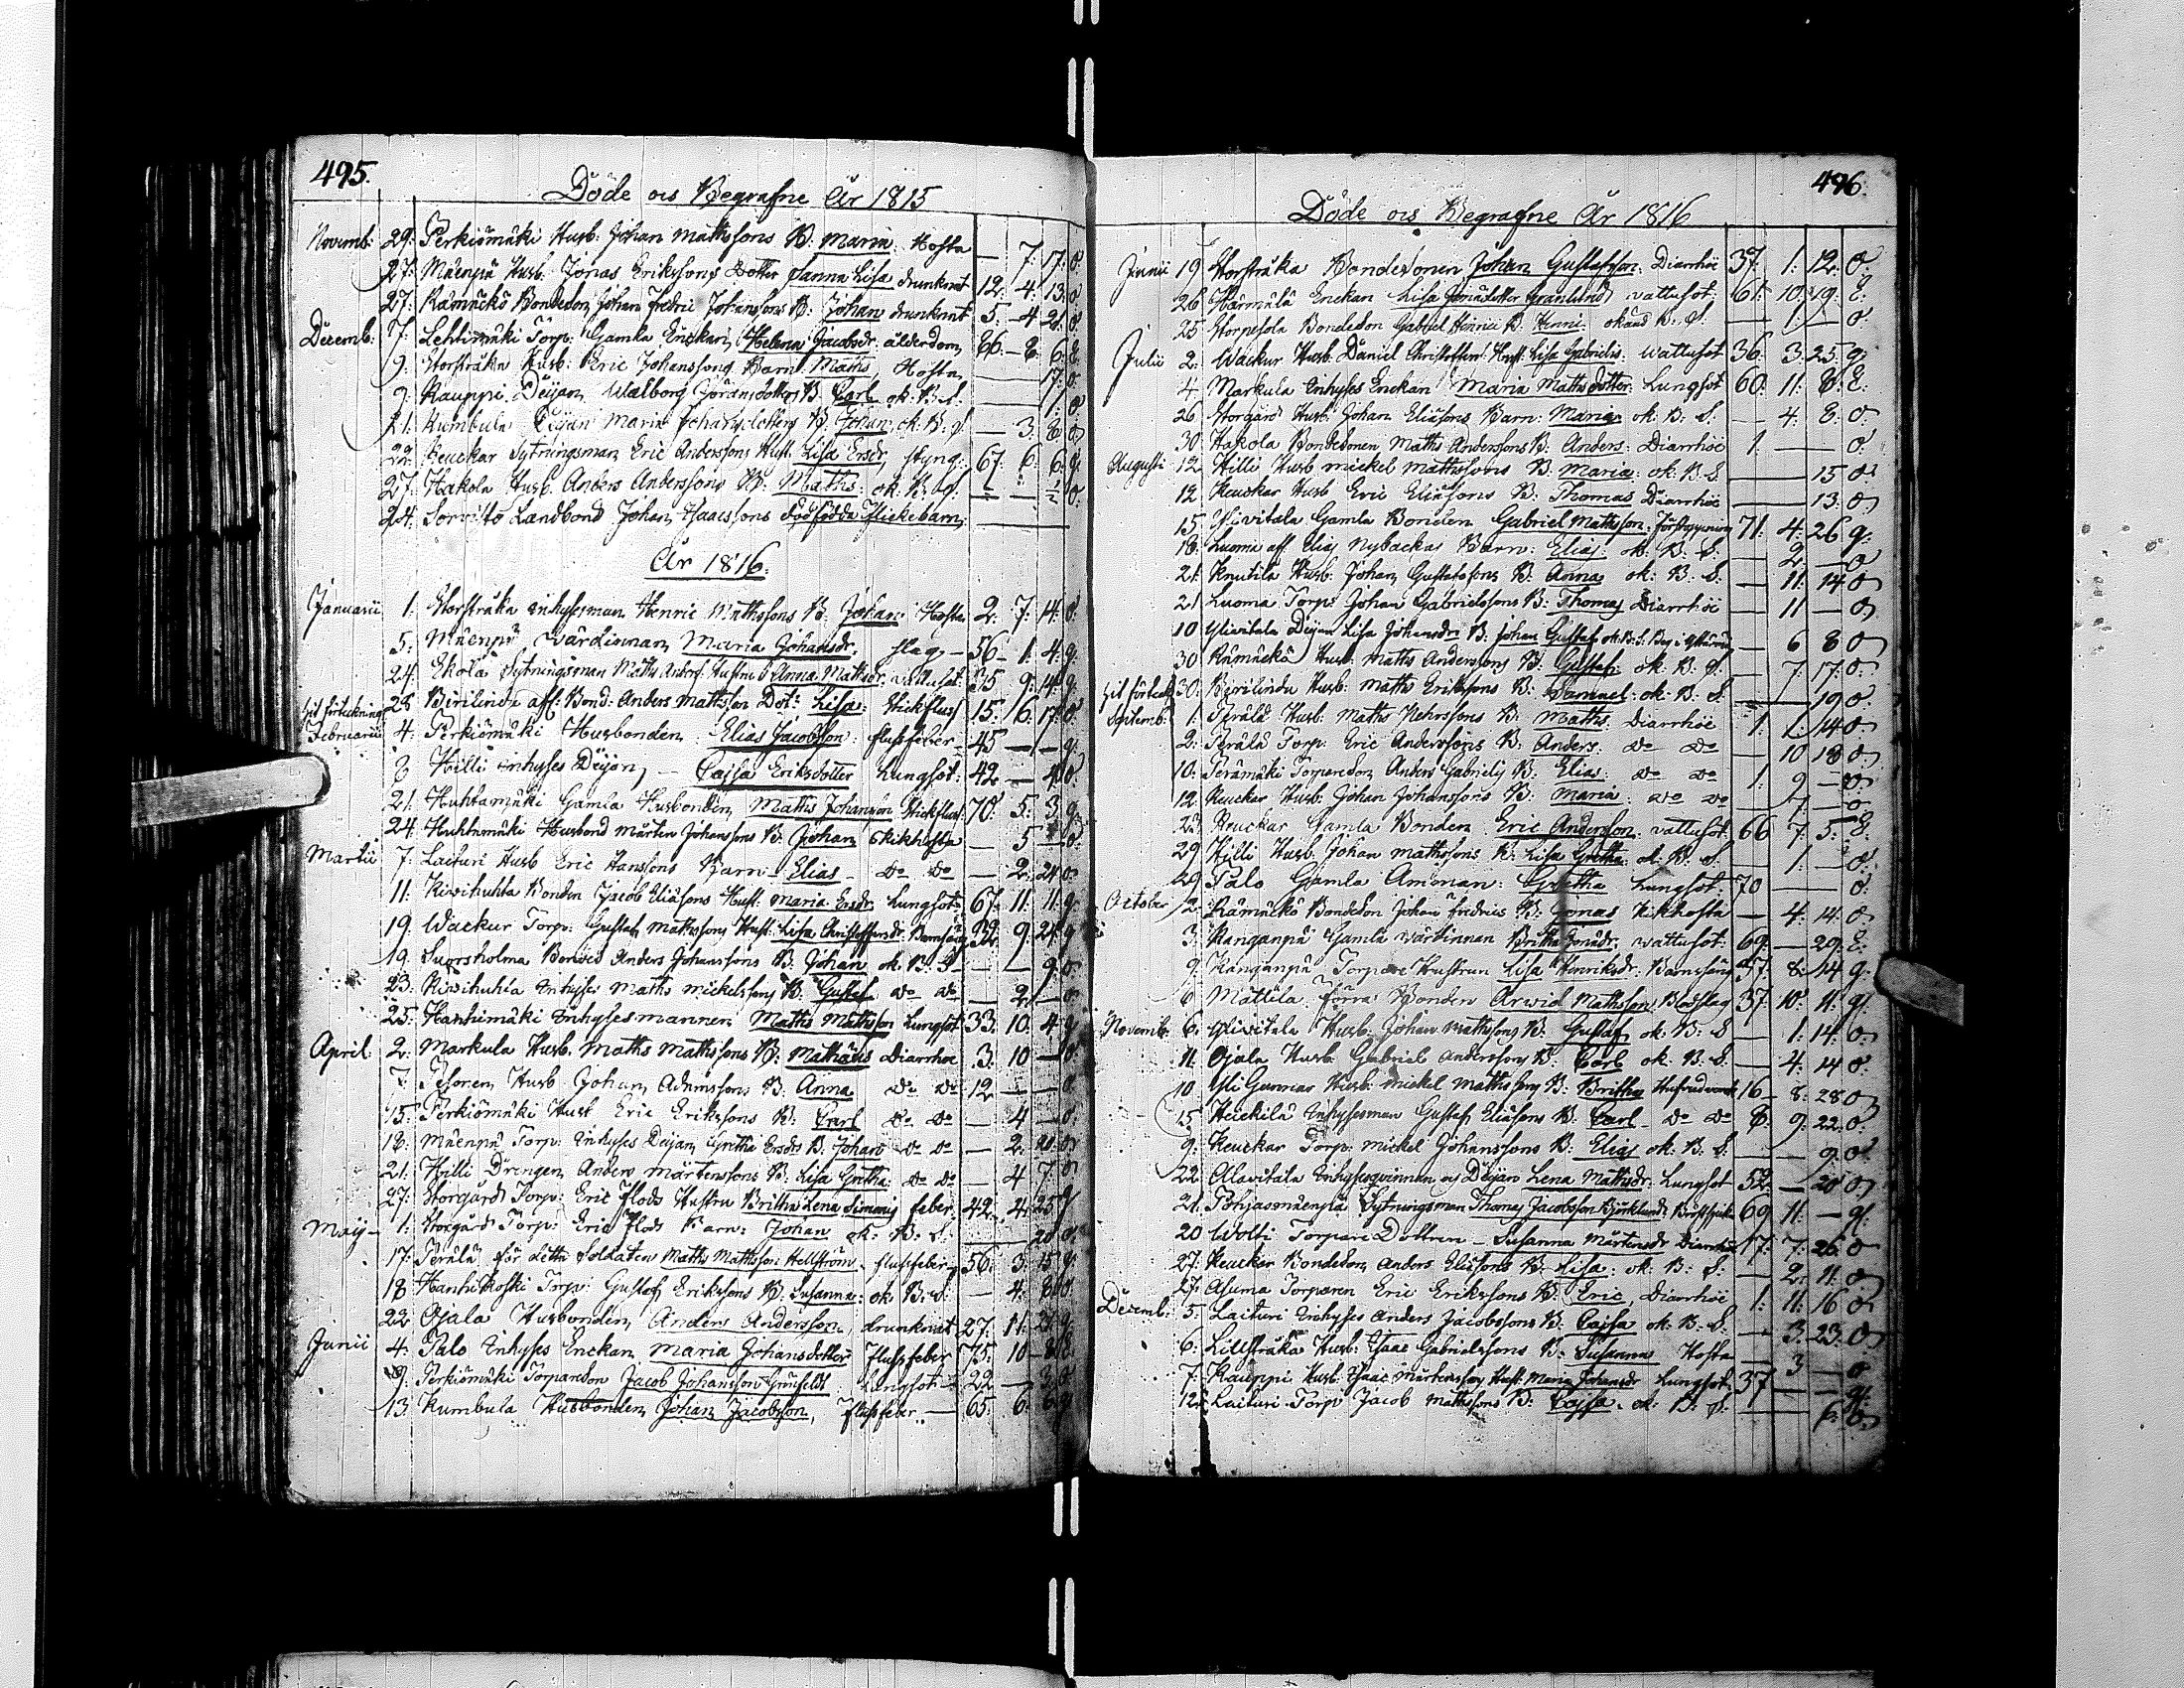 495.
Döde och Begrafne År 1815
Novemb: 29: Perkiömäki Husb: Johan Mathssons B: Maria: Hosta — 7: 17: o:
27: Mäenpä Husb. Jonas Erikssons Dotter Sanna Lisa drunknat 12: 4: 13: o
27: Rämäckö Bondeson Johan Fredric Johanssons B: Johan drunknat 5. — 4 21: o:
Decemb: 7: Lehtimäki Torp: Gamla Enckan Helena Jacobsdr ålderdom 86. — 8: 6: E
9: Storstråka Husb: Eric Johanssons Barn: Maths, Hosta — 17: o:
9: Kauppi Deijan Walborg Göransdotters B: Carl ok: B: S. — 1: o
21: Kumbula Deijan Maria Johansdotters B: Johan, ok. B: S — 3: 8: o
22: Keuckar Sytningsman Eric Anderssons Hust. Lisa Ersdr, styng: 67: 6: 6: g:
27: Hakola Husb. Anders Anderssons B: Maths: ok. B: S: — o.
24: Sorvisto Landbond Johan Isaacssons dödfödda Flickebarn: —
År 1816:
Januarii 1: Storstråka inhysesman Henric Mathssons B: Johan: Hosta 2: 7: 14: o:
5: Mäenpä Wärdinnan Maria Johansdr. slag — 56 — 1: 4: g:
24: Ekola Sytningsman Maths Anders: Hustru Anna Mathsdr: wattusot: 35 9: 4: g:
28 Birilinda aff: Bond: Anders Mathsson Dot: Lisa: Stickfluss 15: 6: 17: o:
hit förteckning
Februarii 4: Perkiömäki Husbonden Elias Jacobsson: flussfeber — 45 — — g:
8 Hilli inhyses Deijan, — Cajsa Eriksdotter Lungsot: 42 — 4: o:
21: Huhtamäki Gamla Husbonden Matts Johansson Stickfluss 70: 5: 3: g:
24: Huhtamäki Husbond Mårten Johanssons B: Johan Kikhosta — 5 — o:
Martii 7: Laituri Husb Eric Hanssons Barn — Elias — Do Do — 2: 24 o:
11: Kivihuhta Bonden Jacob Eliäsons Hust: Maria Ersdr, Lungsot: 67: 11: 11: g:
19. Wackur Torp: Gustaf Mathssons Hust: Lisa Christoffersdr: Barnsäng 32: 9: 24: g
19. Suorsholma Anders Johanssons B: Johan ok: B: S — — 9: o:
23: Kivihuhta Inhyses Maths Mickelssons B: Gustaf Do Do — 2: — o:
25: Hanhimäki Inhysesmannen Maths Mathsson Lungsot: 33: 10. 4: g
April 2: Markula Husb. Maths Mathssons B: Mathäus Diarrhoe 3: 10 — o:
7: Pesonen Husb Johan Adamssons B: Anna Do Do 12 — — o:
15: Perkiömäki Husb Eric Erikssons B: Carl Do Do — 4 — o:
18: Mäenpä Torp: Inhyses Deijan Gretha Ersdrs B: Johan Do Do — 2: 21: o:
21: Hilli Drengen Anders Mårtenssons B: Lisa Gretha: Do Do — 4 7: o
27: Storgård Torp: Eric Flods Hustru Britha Lena Simonis feber: 42: 4: 25: g
Maij — 1: Storgård Torp: Eric Flods Barn: Johan ok: B: S: — 20 o:
17: Perälä för detta Soldaten Maths Mathsson Hellström — flussfeber 56: 3: 15: g:
18 Hanhikoski Torp: Gustaf Erikssons B: Susanna: ok: B: S: — 4: 8: o:
22 Ojala Husbonden Anders Andersson, drunknat 27: 11: 21: g:
Junii 4: Palo Inhyses Enckan Maria Johansdotter Flussfeber 75: 10 — 8: E:
9: Perkiömäki Torpareson Jacob Johansson Grönfeldt Lungsot — 22 —
13: Kumbula Husbonden Johan Jacobsson, Flussfeber — 65: 6: 6: g
496.
Döde och Begrafne År 1816
Junii 19 Storstråka Bondesonen Johan Gustafsson: Diarrhöe 37: 1: 12: o:
26: Härmälä Enckan Lisa Jonädotter Granlund wattusot: 61: 10: 19: E:
25: Storpesola Bondeson Gabriel Henrici B: Henric okänd B: S: — 1: — o:
Julii 2: Wackur Husb: Daniel Christoffers: Hust: Lisa Gabrielis: Wattusot 36: 3: 25: g:
4: Markula Inhyses Enckan Maria Mathsdotter: Lungsot 60: 11: 8: E:
26 Storgård Husb: Johan Eliäsons Barn: Maria: ok: B: S: — 4: 8: o:
30: Hakola Bondesonen Maths Anderssons B: Anders: Diarrhöe 1: — o:
Augusti 12: Hilli Husb Mickel Mathssons B: Maria: ok: B: S — 15 o:
12 Keuckar Husb Eric Eliäsons B: Thomas Diarrhöe — 13: o
15: Ylivitala Gamla Bonden Gabriel Mathsson: 71: 4: 26 g:
18: Luoma aff. Elias Nybackas Barn: Elias: ok: B: S: — 2 — o
21: Knutila Husb: Johan Gustafssons B: Anna ok: B: S: — 11: 14 o
21 Luoma Torp: Johan Gabrielssons B: Thomas Diarrhöe — 11 — o
10 Ylivitala Deijan Lisa Johansdrs B: Johan Gustaf ok: B: S. Beg: i Ylistaro — 6 8 o
30 Rämäckö Husb: Maths Anderssons B: Gustaf: ok: B: S: — 7: 17: o:
hit förteckn 30: Birilinda Husb: Maths Erikssons B: Samuel: ok: B: S: — 19 o:
Septemb: 1: Perälä Husb: Maths Nehrssons B: Maths: Diarrhöe 1: 1: 14 o
2: Perälä Torp: Eric Anderssons B: Anders: Do Do — 10 18 o
10: Perämäki Torpareson Anders Gabrielis B: Elias: Do Do 1: 9 — o:
12: Keuckar Husb: Johan Johanssons B: Maria: Do Do — 7 — o
23 Keuckar Gamla Bonden Eric Andersson: Wattusot: 66 7: 5: E:
29 Hilli Husb: Johan Mathssons B: Lisa Gretha: ok: B: S — 1: — o:
29 Palo Gamla Amman: Gretha Lungsot: 70 — — o:
October 2: Rämäckö Bondeson Johan Fredrics B: Jonas Kikhosta — 4: 14: o
3: Kanganpä Gamla Wärdinnan Britha Jonädr. Wattusot: 69: — 29: E:
9: Kanganpä Torpare Hustrun Lisa Henriksdr. Barnsäng 37: 8: 14 g:
6 Mattila Förra Bonden Arwid Mathsson, Bodslag 37: 10: 11: g:
Novemb: 6: Ylivitala Husb: Johan Mathssons B. Gustaf, ok: B: S — 1: 14: o:
11 Ojala Husb Gabriel Anderssons B: Carl ok: B: S: — 4: 14 o:
10 Yli Gunnar Husb: Mickel Mathssons B: Britha Hufvudwerk 16 — 8: 28 o
15 Heickilä Inhysesman Gustaf Eliäsons B: Carl — Do Do 8: 9: 22: o:
9: Keuckar Torp: Mickel Johanssons B: Elias ok: B: S: — — 9: o:
22: Alavitala Inhysesqvinnan och Deijan Lena Mathsdr. Lungsot 52: — 20 o
21: Pohjasmäenpä Sytningsman Thomas Jacobsson Björklund: Bröstsjuka 69 11: — g:
20 Wolti Torpare Dottren — Susanna Mårtensdr Diarrhöe 17: 7: 26: o
27: Keuckar Bondeson Anders Eliäsons B: Lisa: ok: B: S: — 2: 11: o
27: Asuma Torparen Eric Erikssons B: Eric, Diarrhöe 1: 11: 16 o
Decemb: 5: Laituri Inhyses Anders Jacobssons B: Cajsa ok: B: S: — 3: 23: o
6: Lillstråka Husb: Isaac Gabrielssons B: Susanna Hosta — 3 — o
7: Kauppi Husb: Isaac Mårtenssons Hust: Maria Johansdr Lungsot 37 — — g:
12: Laituri Torp: Jacob Mathssons B: Cajsa. ok: B: S: — 6: o